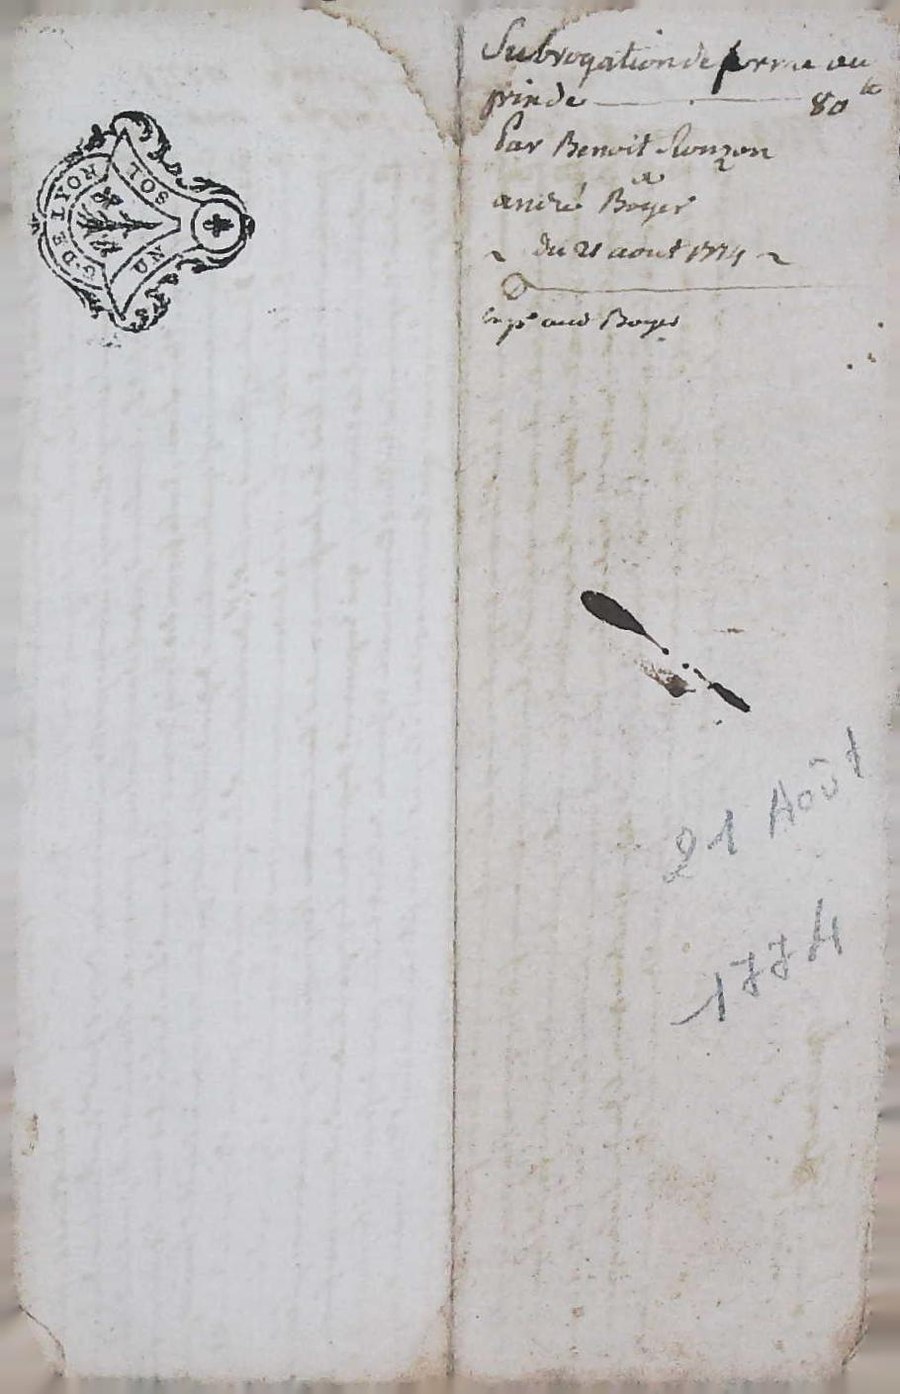 G. DE LYON
UN SOL
Subrogation de ferme au
prix de 80 lt
Par Benoit Ronzon
a
andré Boyer
du 21 aout 1774
Boyer
21 Août
1774